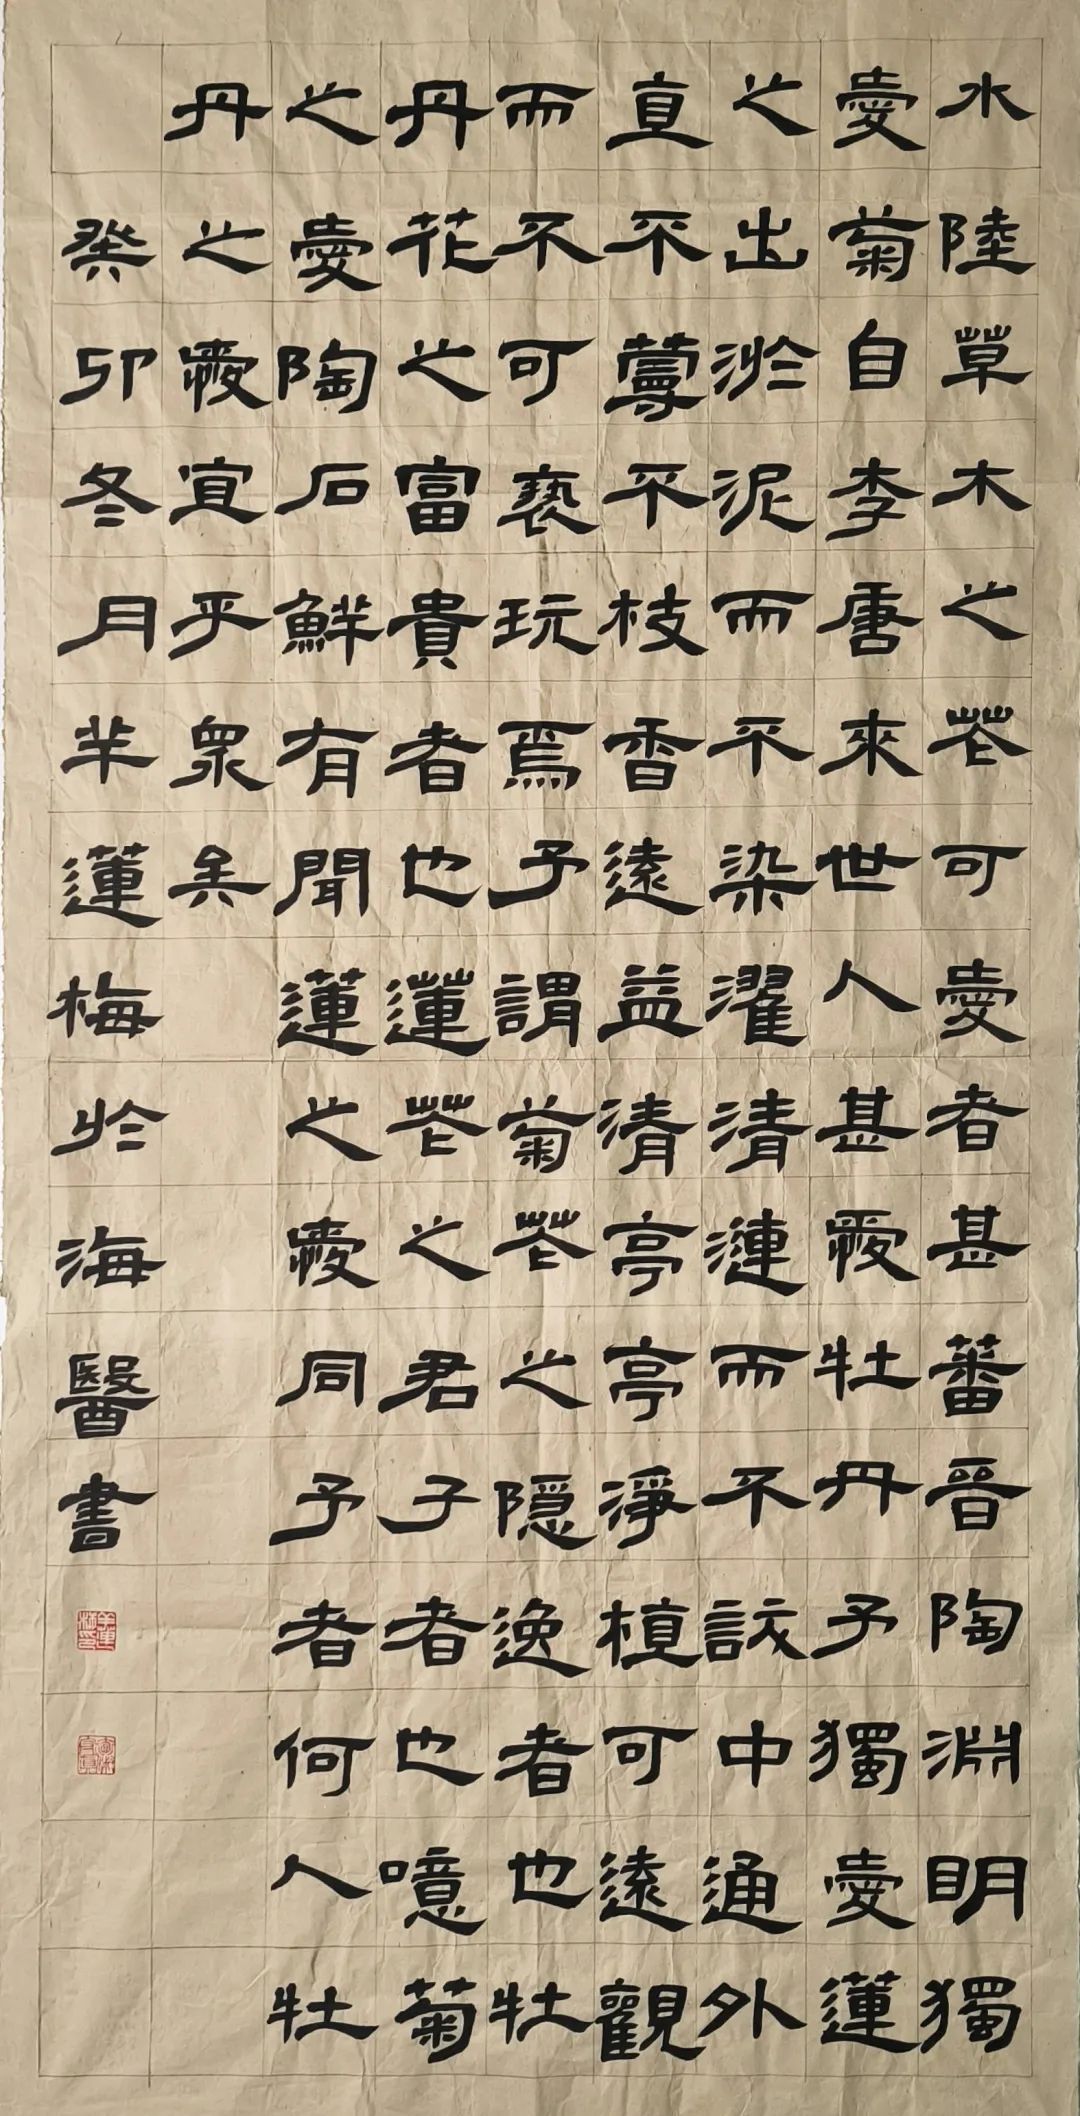 水陸草木之花可愛者甚蕃晉陶淵明獨
愛菊自李唐來世人甚愛牡丹予獨愛蓮
之出淤泥而不染濯清漣而不訞中通外
直不蔓不枝香遠益清亭亭淨植可遠觀
而不可褻玩焉予謂菊花之隱逸者也牡
丹花之富貴者也蓮花之君子者也噫菊
之愛陶石鮮有聞蓮之愛同予者何人牡
丹之愛宜乎眾矣
癸卯冬月羊蓮梅於海醫書